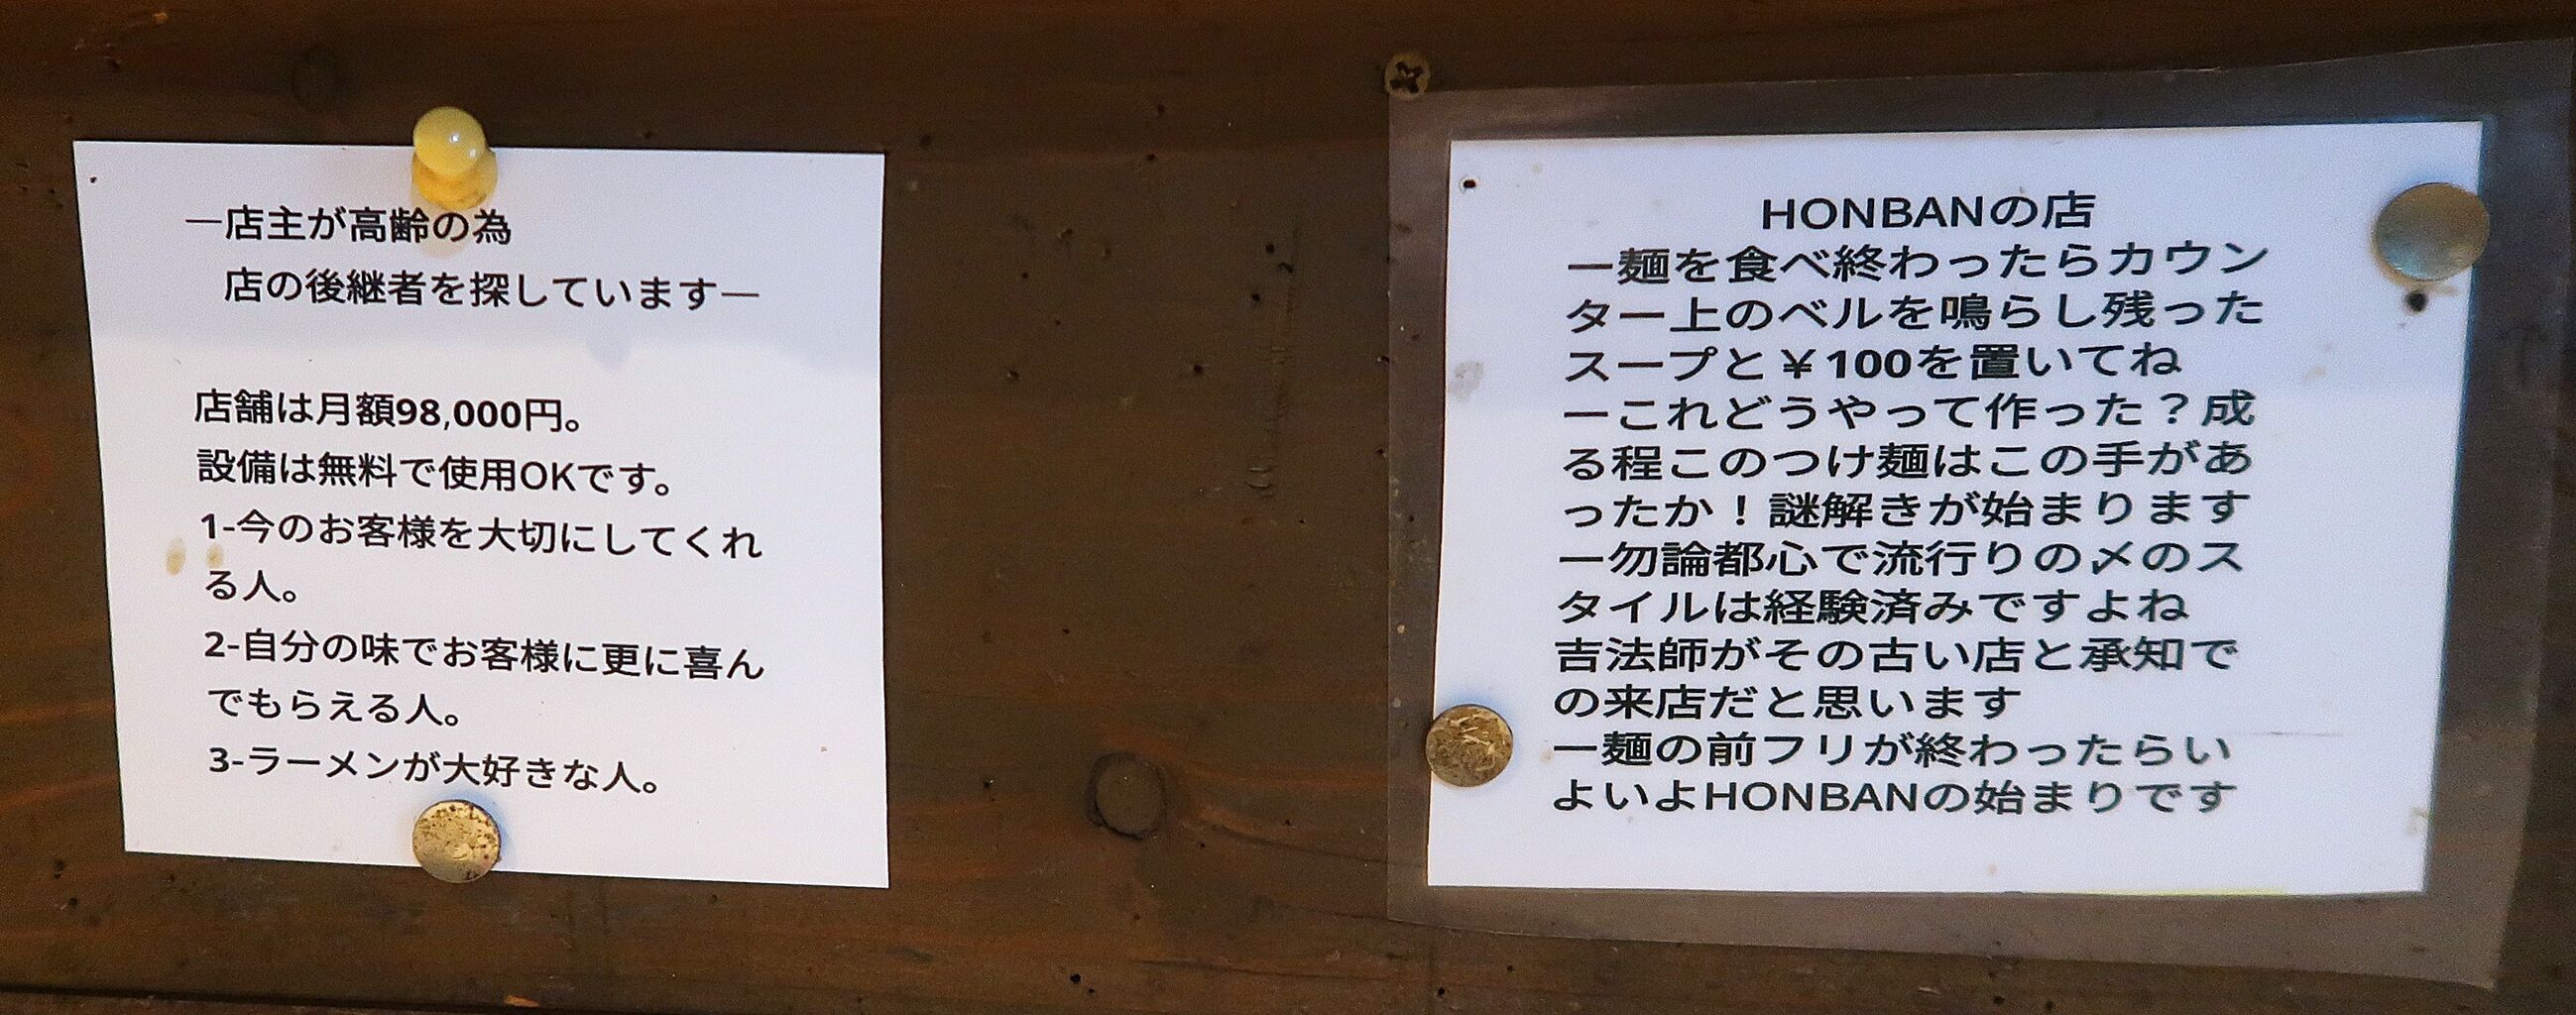 ―店主が高齢の為
店の後継者を探しています―
店舗は月額98,000円。
設備は無料で使用OKです。
1-今のお客様を大切にしてくれ
る人。
2-自分の味でお客様に更に喜ん
でもらえる人。
3-ラーメンが大好きな人。
HONBANの店
ー麺を食べ終わったらカウン
ター上のベルを鳴らし残った
スープと￥100を置いてね
ーこれどうやって作った？成
る程このつけ麺はこの手があ
ったか！謎解きが始まります
ー勿論都心で流行りの〆のス
タイルは経験済みですよね
吉法師がその古い店と承知で
の来店だと思います
ー麺の前フリが終わったらい
よいよHONBANの始まりです